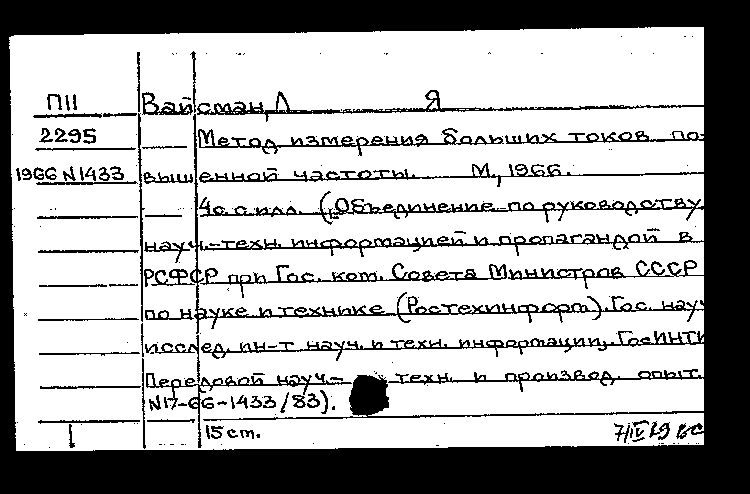 П11 Вайсман, Л Я
2295 Метод измерения больших токов по-
1966 N1433 вышенной частоты. М., 1966.
4с. с илл. (Объединение по руководству
науч.-техн. информацией и пропагандой в
РСФСР при Гос. ком. Совета Министров СССР
по науке и технике (Ростехинформ). Гос. науч
исслед. ин-т науч. и техн. информации. ГосИНТИ
Передовой науч.- техн. и производ. опыт.
N17-66-1433/83).
15 cm.